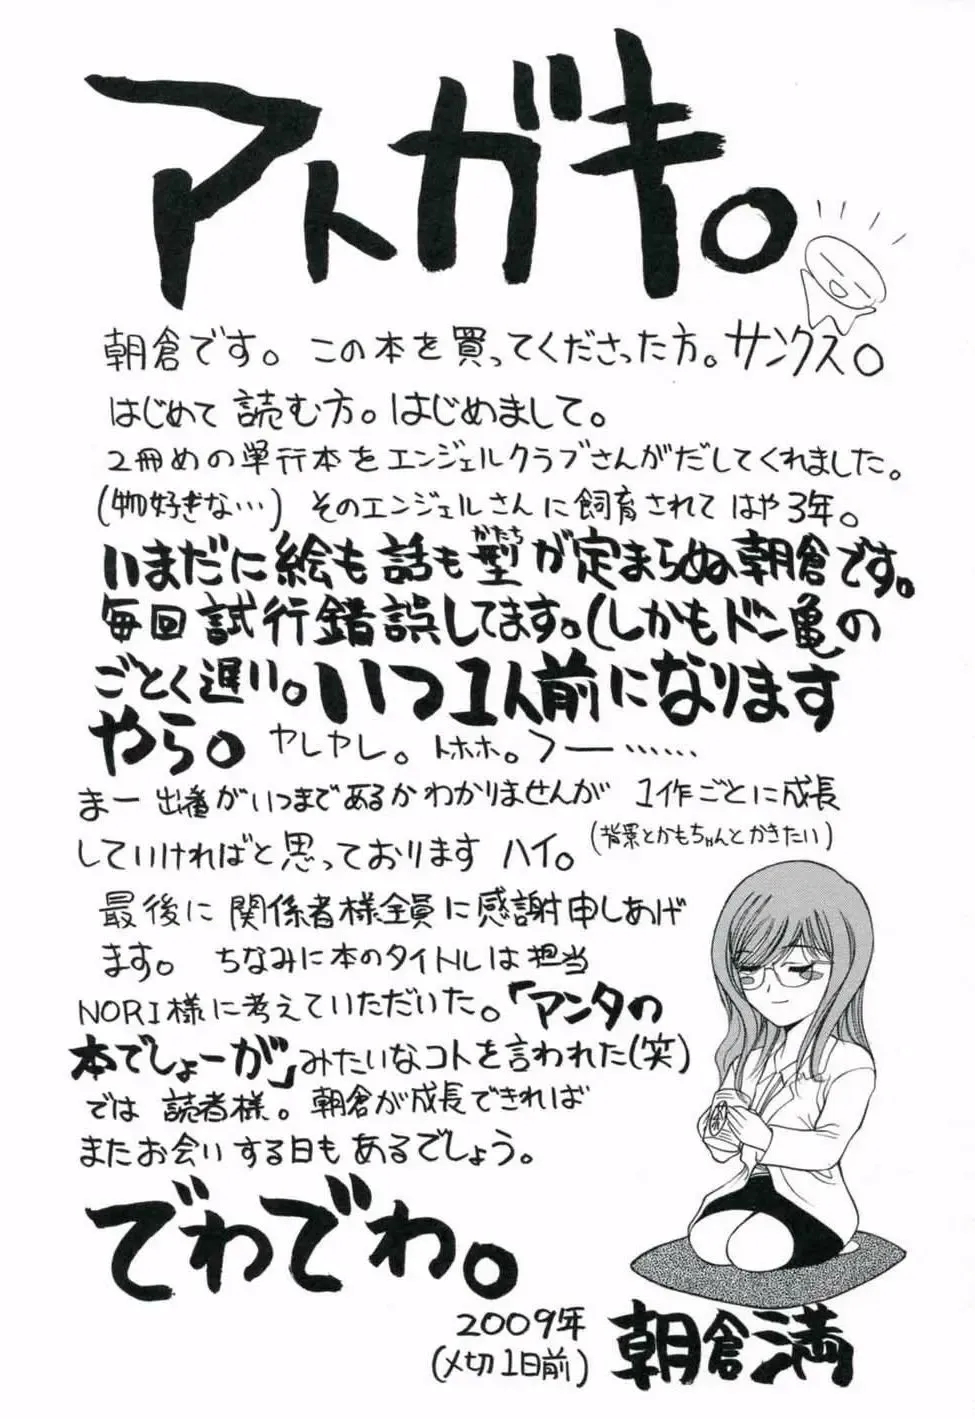 アトガキ。
朝倉です。この本を買ってくださった方。サンクス。
はじめて読む方。はじめまして。
2冊めの単行本をエンジェルクラブさんがだしてくれました。
(物好きな…)そのエンジェルさんに飼育されてはや3年。
いまだに絵も話も型(かたち)が定まらぬ朝倉です。
毎回試行錯誤してます。(しかもドン亀の
ごとく遅い。いつ1人前になります
やら。ヤレヤレ。トホホ。フー……
まー出番がいつまであるかわかりませんが1作ごとに成長
していければと思っておりますハイ。(背景とかもちゃんとかきたい)
最後に関係者様全員に感謝申しあげ
ます。ちなみに本のタイトルは担当
NORI様に考えていただいた。「アンタの
本でしょーが」みたいなコトを言われた(笑)
では読者様。朝倉が成長できれば
またお会いする日もあるでしょう。
でわでわ。
2009年
(〆切1日前)
朝倉満